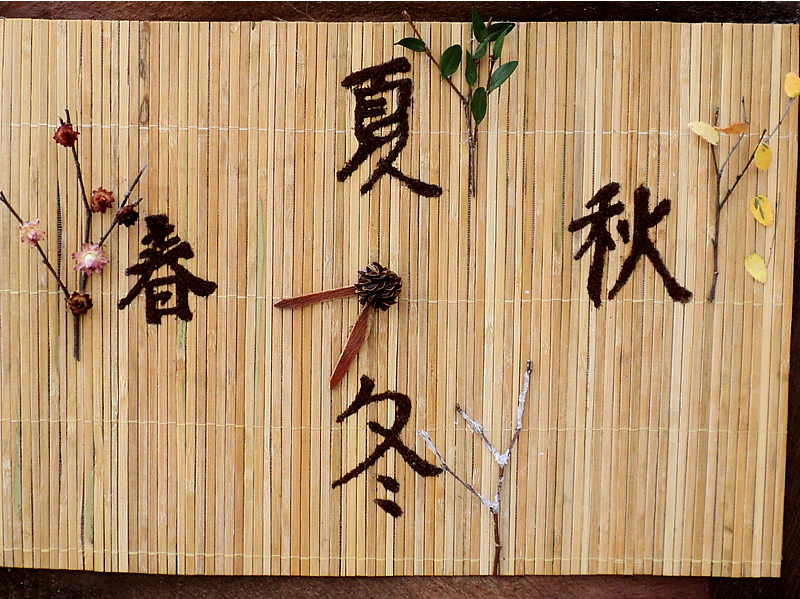 春
夏
秋
冬